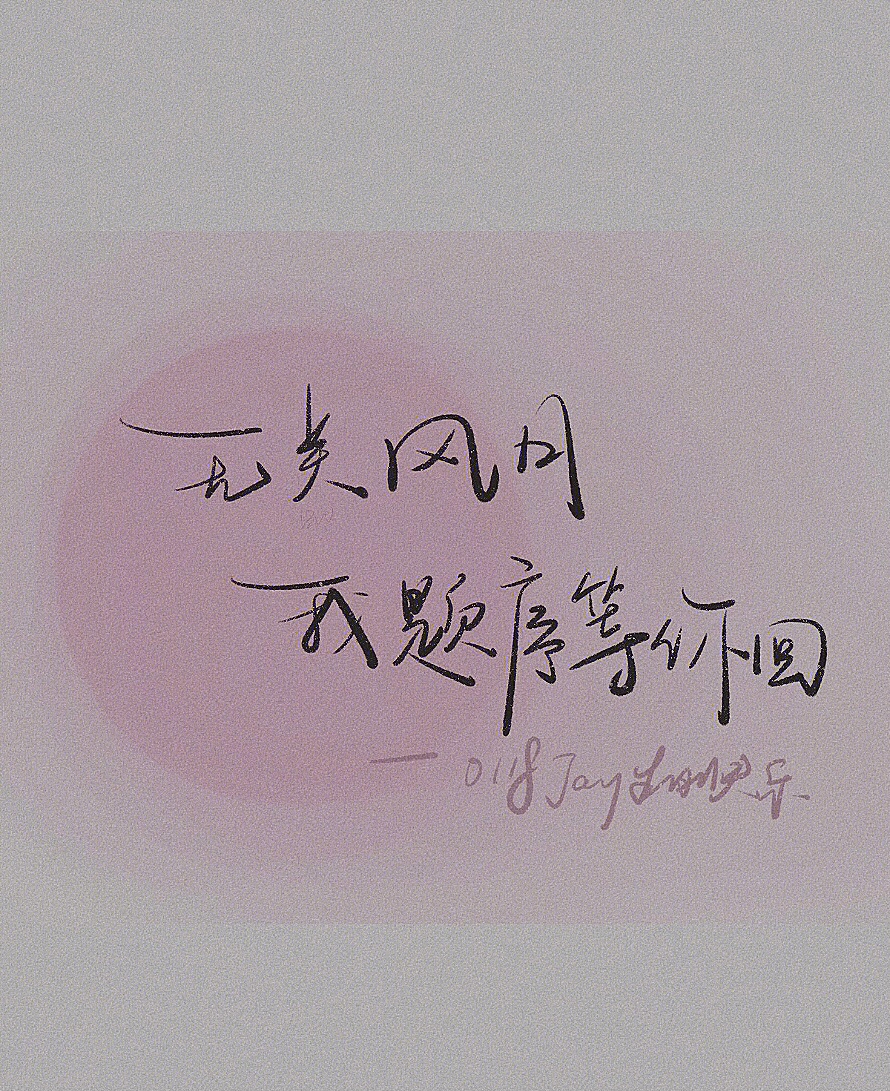 无关风月
我题序等你回
— 0118 Jay生日快乐